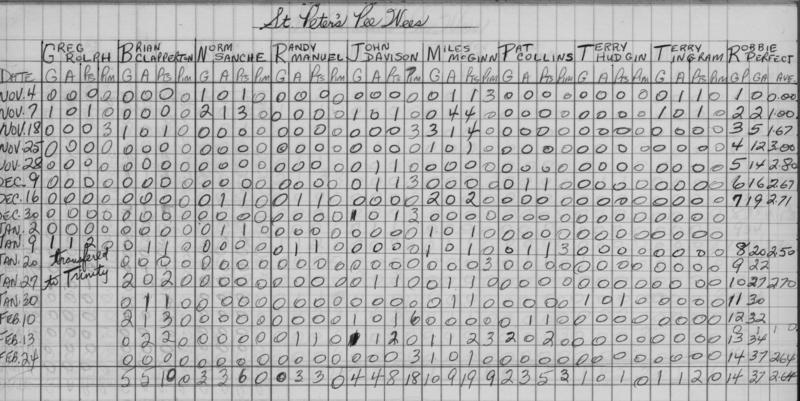 St Peter's Pee Wees
GREG ROLPH BRIAN CLAPPERTON NORM SANCHE RANDY MANUEL JOHN DAVISON MILES MCGINN PAT COLLINS TERRY HUDGIN TERRY INGRAM ROBBIE PERFECT
DATE G A Pts Pim G A Pts Pim G A Pts Pim G A Pts Pim G A Pts Pim G A Pts Pim G A Pts Pim G A Pts Pim G A Pts Pim GP GA AVE.
NOV. 4 0 0 0 0 0 0 0 0 1 0 1 0 0 0 0 0 0 0 0 0 0 1 1 3 0 0 0 0 0 0 0 0 0 1 1 0 1 0 0.00
NOV. 7 1 0 1 0 0 0 0 0 2 1 3 0 0 0 0 0 1 0 1 0 0 4 4 0 0 0 0 0 0 0 0 0 1 0 1 0 2 2 1.00
NOV. 18 0 0 0 3 1 0 1 0 0 0 0 0 0 0 0 0 0 0 0 3 3 1 4 0 0 0 0 0 0 0 0 0 0 0 0 0 3 5 1.67
NOV. 25 0 0 0 0 0 0 0 0 0 0 0 0 0 0 0 0 0 0 0 0 1 0 1 0 0 0 0 0 0 0 0 0 0 0 0 0 4 12 3.00
NOV. 28 0 0 0 0 0 0 0 0 0 0 0 0 0 0 0 0 0 1 1 0 0 0 0 0 0 0 0 0 0 0 0 0 0 0 0 0 5 14 2.80
DEC. 9 0 0 0 0 0 0 0 0 0 0 0 0 0 0 0 0 0 1 1 3 0 0 0 0 0 1 1 0 0 0 0 0 0 0 0 0 6 16 2.67
DEC. 16 0 0 0 0 0 0 0 0 0 1 1 0 0 1 1 0 0 0 0 0 2 0 2 0 0 0 0 0 0 0 0 0 0 0 0 0 7 19 2.71
DEC. 30 0 0 0 0 0 0 0 0 0 0 0 0 0 0 0 0 1 0 1 3
JAN. 2 0 0 0 0 0 0 0 0 0 1 1 0 0 0 0 0 0 0 0 0 1 0 1 0
JAN. 9 1 1 2 0 1 1 0 0 0 0 0 0 1 1 0 0 0 0 0 1 0 1 0 0 1 1 3 0 0 0 0 0 0 0 0 8 20 2.50
JAN. 20 transfered 0 0 0 0 0 0 0 0 0 0 0 0 0 0 0 0 0 0 0 3 0 0 0 0 0 0 0 0 0 0 0 0 9 22
JAN. 27 to Trinity 2 0 2 0 0 0 0 0 0 0 0 0 0 1 1 0 0 1 1 0 0 0 0 0 0 0 0 0 0 0 0 0 10 27 2.70
JAN. 30 0 1 1 0 0 0 0 0 0 0 0 0 0 0 0 0 0 1 1 0 0 0 0 0 1 0 1 0 0 0 0 0 11 30
FEB. 10 2 1 3 0 0 0 0 0 0 0 0 0 1 0 1 6 0 0 0 0 0 1 1 0 0 0 0 0 0 0 0 0 12 32
FEB. 13 0 2 2 0 0 0 0 0 0 1 1 0 1 1 2 0 1 1 2 3 2 0 2 0 0 0 0 0 0 0 0 0 13 34
FEB. 24 0 0 0 0 0 0 0 0 0 0 0 0 0 0 0 3 1 0 1 0 0 0 0 0 0 0 0 0 0 0 0 0 14 37 2.64
5 5 10 0 3 3 6 0 0 3 3 0 4 4 8 18 10 9 19 9 2 3 5 3 1 0 1 0 1 1 2 0 14 37 2.64